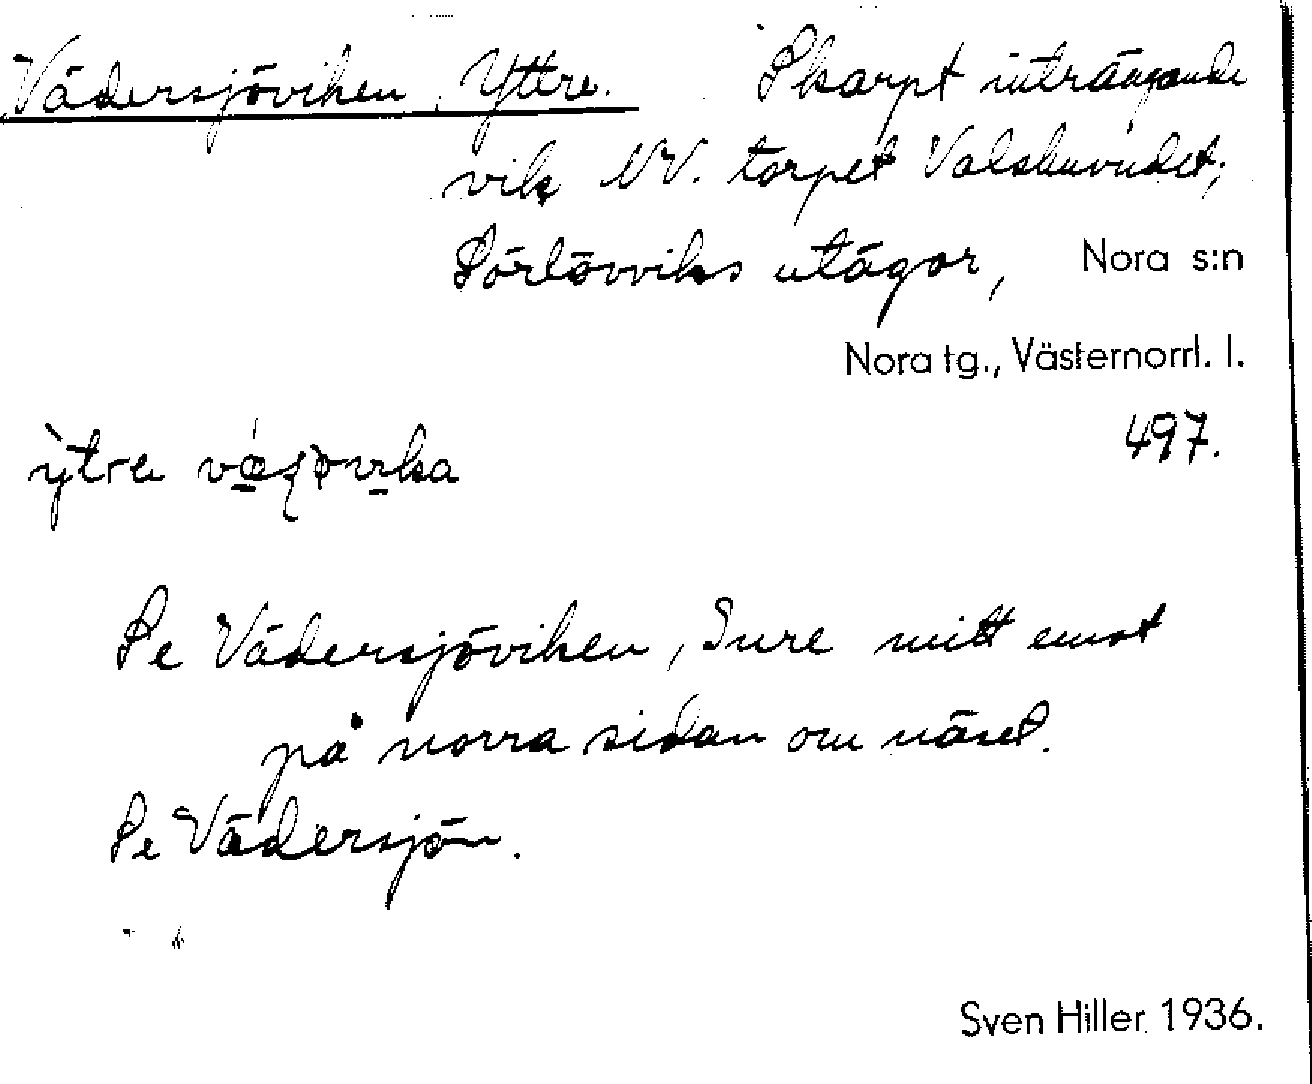 Vädersjöviken, Yttre. Skarpt inträngande
vik NV. torpet Valshuvudet;
Sörlövviks utägor, Nora s:n
Nora tg., Västernorrl. l.
497.
ỳtre
Se Vädersjöviken, Inre mitt emot
på norra sidan om näset.
Se Vädersjön.
Sven Hiller 1936.